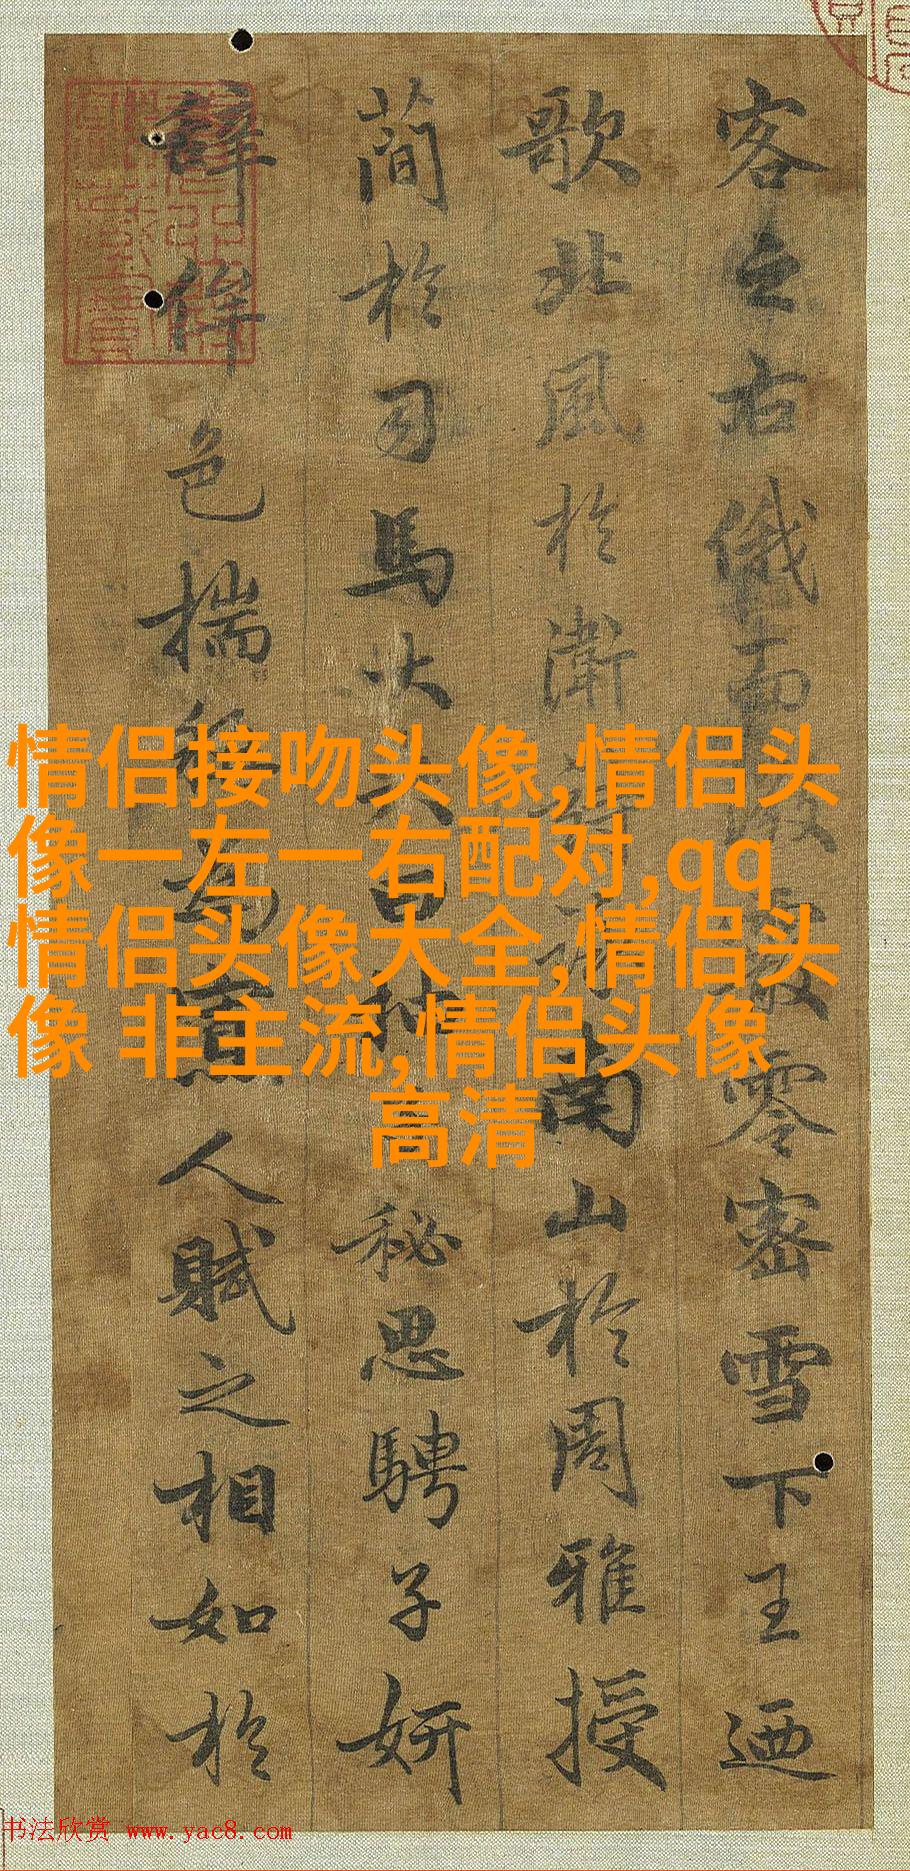 客之右俄而微霰零密雪下王迺
歌北風於衛詩詠南山於周雅授
簡於司馬大夫曰抽秘思騁子妍
辭侔色揣稱為寡人賦之相如於
情侣接吻头像,情侣头
像一左一右配对,qq
情侣头像大全,情侣头
像 非主流,情侣头像
高清
书法欣赏 www.yac8.com